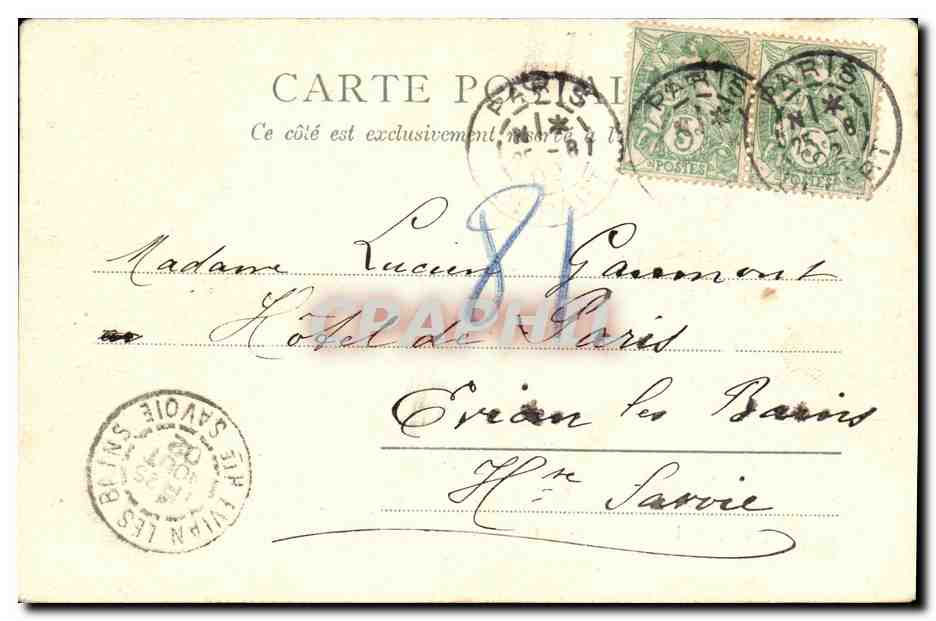 CARTE POSTALE
Ce côté est exclusivement réservé à l'
PARIS
PARIS
PARIS
5
POSTES
5
POSTES
81
Madame Lucien Gaumont
Hôtel de Paris
CPAPHIL
Evian les Bains
Hte Savoie
EVIAN LES BAINS
HTE SAVOIE
02